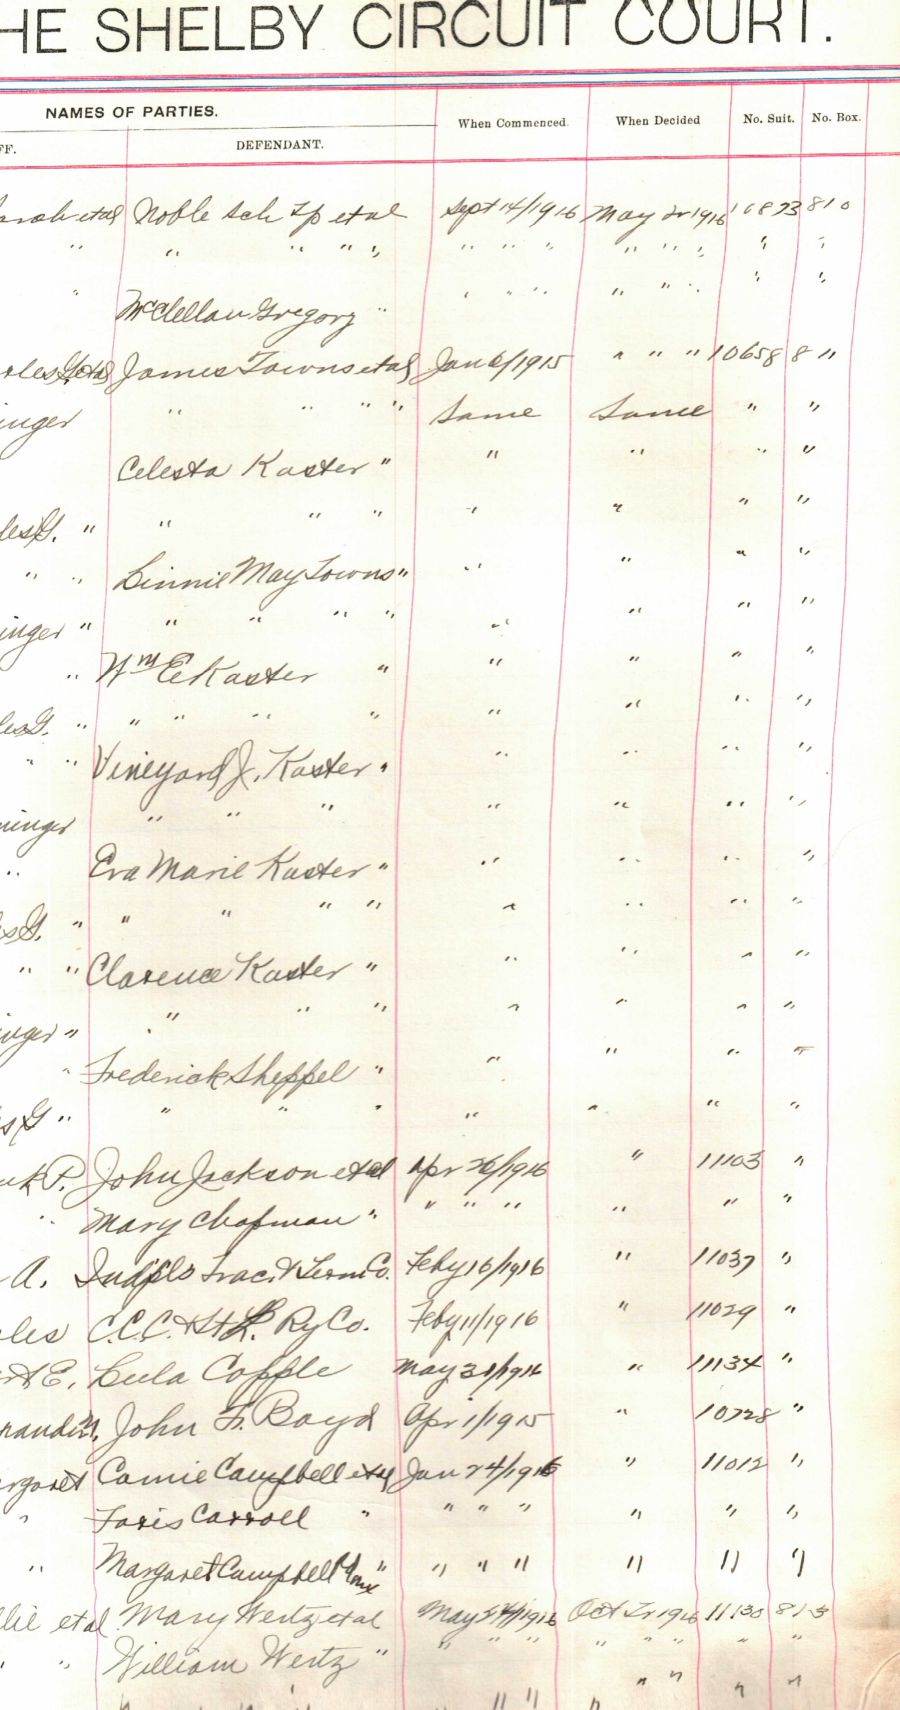 HE SHELBY CIRCUIT COURT.
NAMES OF PARTIES.
When Commenced. When Decided No. Suit. No. Box.
FF. DEFENDANT.
arah etal Noble Sch Tp etal Sept 14/1916 May Tr 1916 10873 810
" " " " " " " " " " " " "
" McClellan Gregory " " " " " " " " "
rles G. etal James Towns etal Jan 6/1915 " " " 10658 8 "
inger " " " " Same Same " "
Celesta Kaster " " " " "
les G. " " " " " " " "
" " Linnie May Towns " " " " "
inger " " " " " " " " "
" Wm E Kaster " " " " "
les G. " " " " " " " " "
" " Vineyard J. Kaster " " " " "
ninger " " " " " " "
" Eva Marie Kaster " " " " "
s G. " " " " " " " " "
" " Clarence Kaster " " " " "
inger " " " " " " " "
" Frederick Sheppel " " " " "
s G " " " " " " " "
nk P. John Jackson etal Apr 26/1916 " 11103 "
" Mary Chapman " " " " " " "
A. Indpls Trac. & Term Co. Feby 16/1916 " 11037 "
les C.C.C. & St L. Ry Co. Feby 11/1916 " 11029 "
rt E. Lula Copple May 31/1916 " 11134 "
randi n. John F. Boyd Apr 1/1915 " 10728 "
argaret Camie Campbell etal Jan 24/1916 " 11012 "
" Faris Carroll " " " " " " "
" Margaret Campbell " " " " " " "
llie etal Mary Wertz etal May 24/1916 Oct Tr 1916 11130 813
" " William Wertz " " " " " " " " "
" " " " " " "